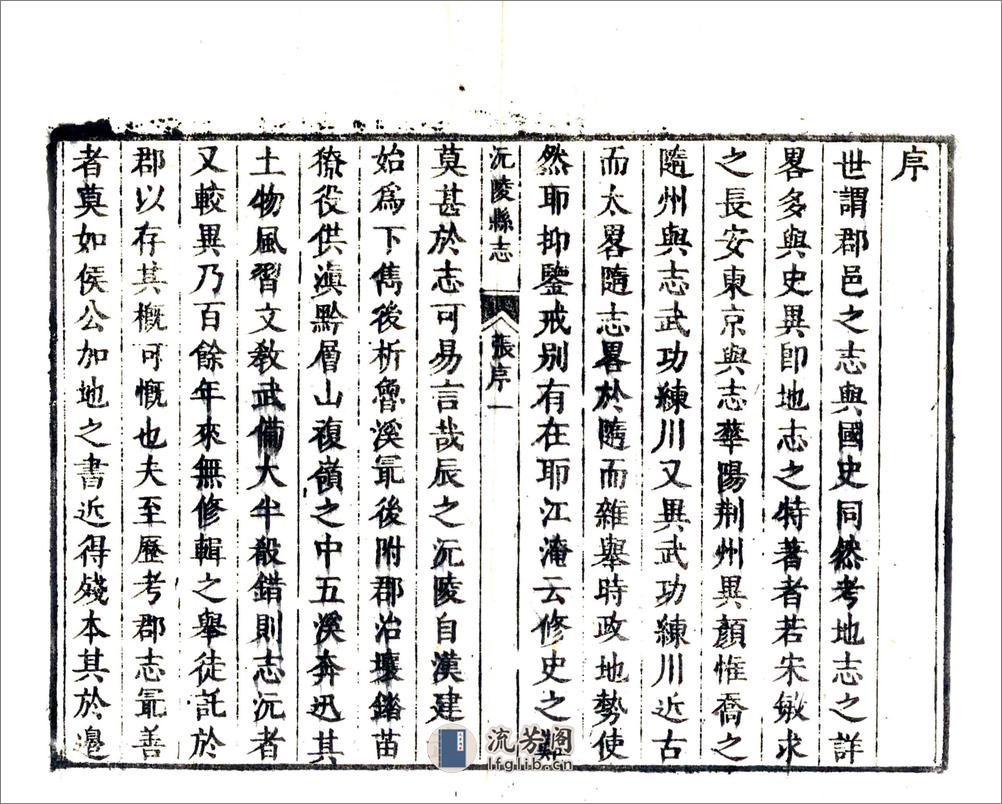 序
世謂郡邑之志與國史同然考地志之詳
畧多與史異卽地志之特著者若宋敏求
之長安東京與志華陽荆州異顏惟喬之
隨州與志武功練川又異武功練川近古
而太畧隨志畧於隨而雜舉時政地勢使
然耶抑鑒戒別有在耶江淹云修史之難
沅陵縣志 張序 一
莫甚於志可易言哉辰之沅陵自漢建
始爲下雋後析魯溪冣後附郡治壤錯苗
獠役供滇黔層山複嶺之中五溪奔迅其
土物風習文敎武備大半殽錯則志沅者
又較異乃百餘年來無修輯之舉徒託於
郡以存其概可慨也夫至歷考郡志冣善
者莫如侯公加地之書近得殘本其於邊
流芳阁
lfglib.cn